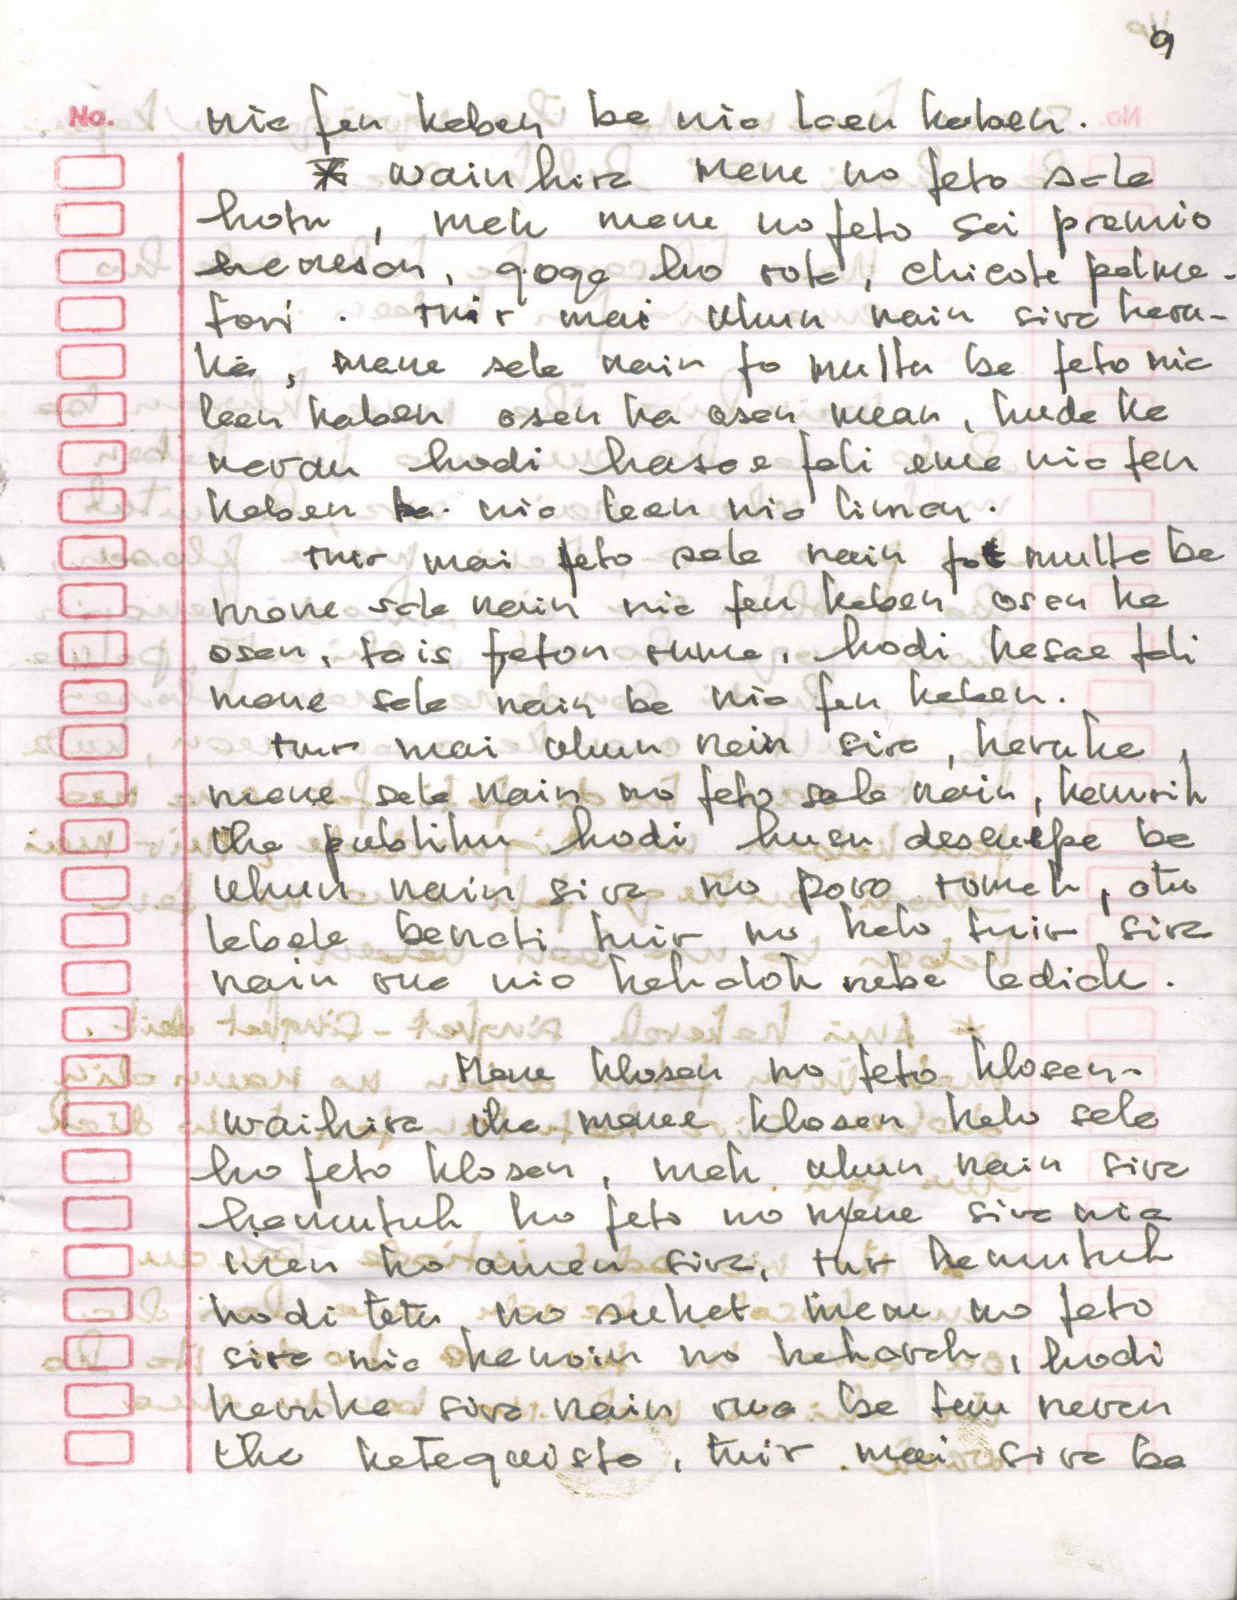 9
No.
nia fen kaben ba nia laen kaben.
wainhira mane no feto sala
hotu, mak mane no feto sei premio
hanesan, goga ho rota, chicote palma-
tori. tuir mai ukun nain sira haru-
ka, mane sala nain fo multa ba feto nia
laen kaben osan ka osan mean, kuda ka
karau hodi hasae fali ema nia fen
kaben ba nia laen nia liman.
tuir mai feto sala nain fo multa ba
mane sala nain nia fen kaben osan ka
osan, tais feton ruma, hodi hasae fali
mane sala nain ba nia fen kaben.
tuir mai ukun nain sira, haruka,
mane sala nain no feto sala nain, hamrik
iha publiku hodi husu desculpa ba
ukun nain sira no povo tomak, atu
labele banati tuir no halo tuir sira
nain rua nia hahalok nebe ladiak.
Mane klosan no feto klosan-
waihira iha mane klosan halo sala
ho feto klosan, mak ukun nain sira
hamutuk ho feto no mane sira nia
inan ho aman sira, tur hamutuk
hodi tetu no suket mane no feto
sira nia kanoin no hakarak, hodi
haruka sira nain rua ba tau naran
iha katequista, tuir mai sira ba